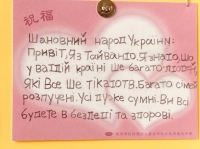 祝福
Шановний народ України:
Привіт, я з Тайваню. Я знаю, що
у вашій країні ще багато людей,
які все ще тікають. Багато сімей
розлучені. Усі дуже сумні. Ви всі
будете в безпеці та здорові.